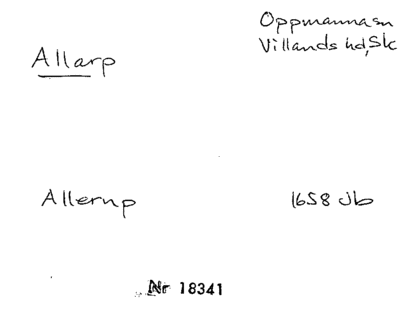 Oppmanna sn
Villands hd, Sk
Allarp
Allerup
1658 Jb
Nr 18341